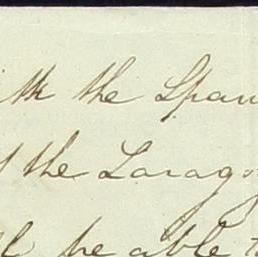 ith the Span
the Larag
be able t